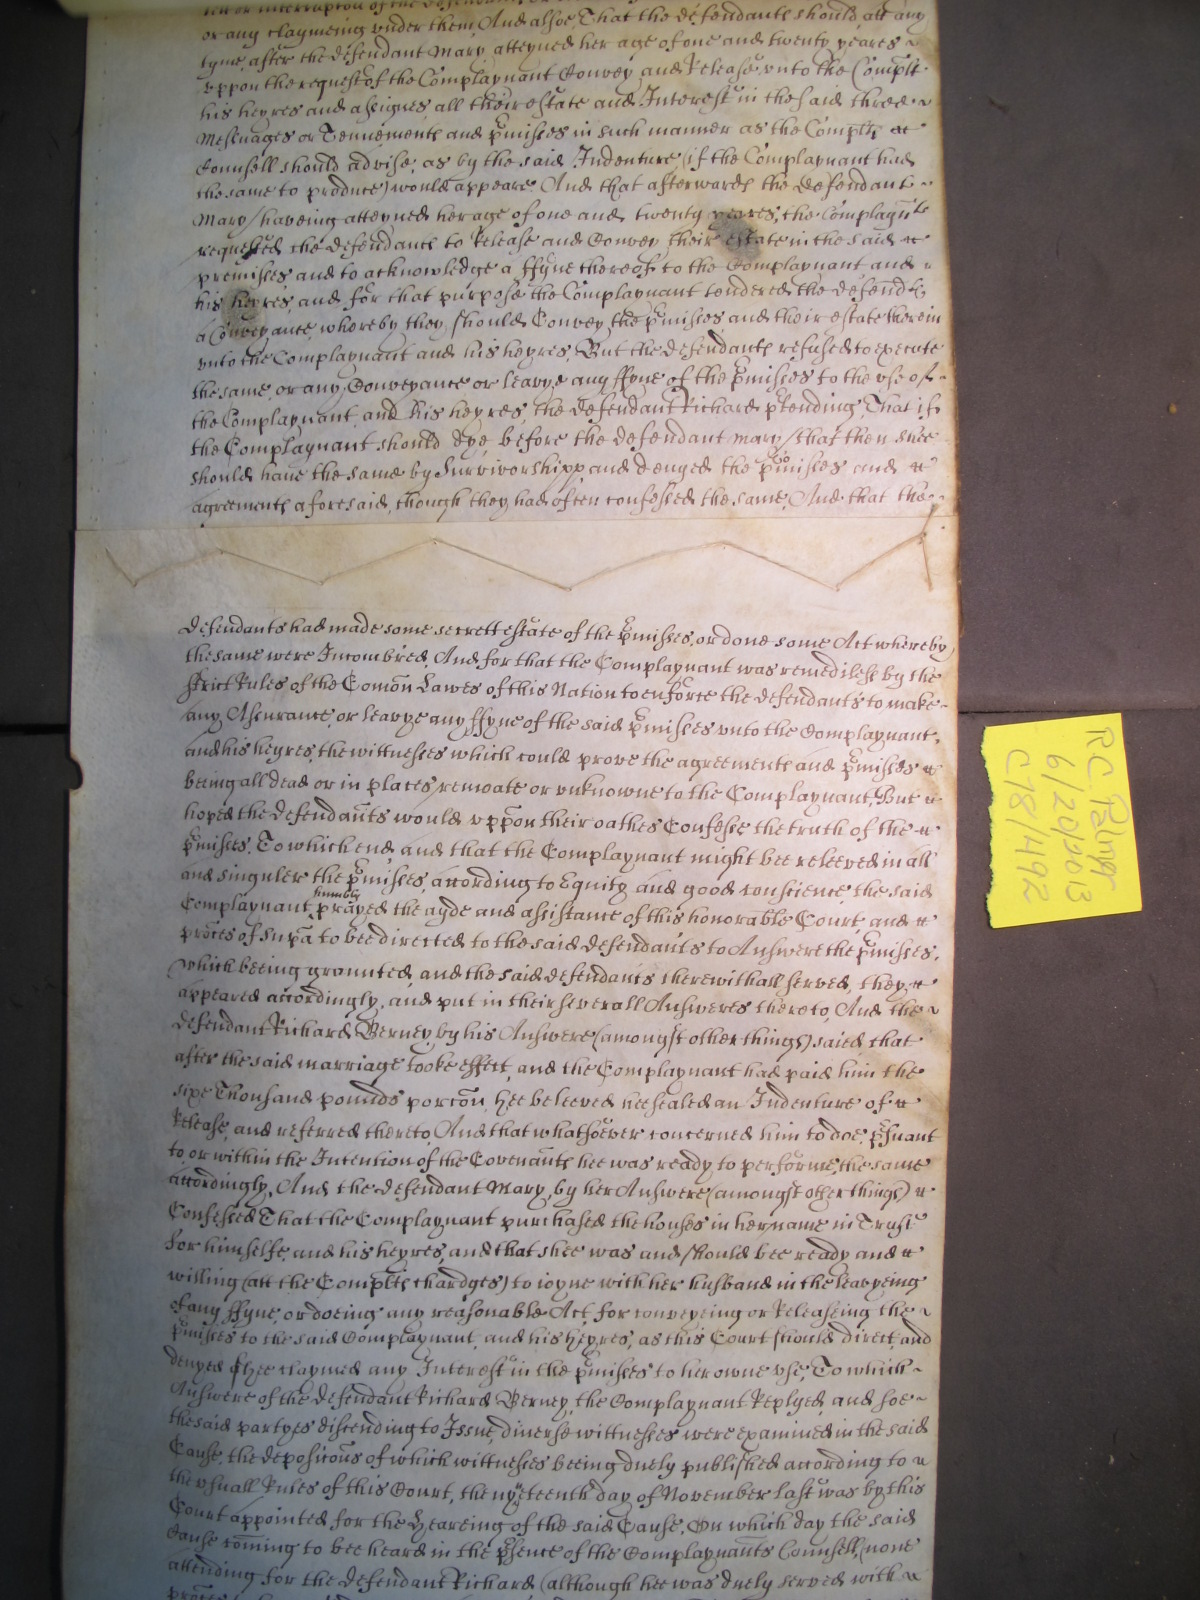 or any claymeing vnder them, And alsoe, That the defendants should att any
tyme, after the defendant Mary atteyned her age of one and twenty yeares
vppon the request of the Complaynant Convey and Release vnto the Complt
his heyres and assignes all their estate and Interest in the said three
Messuages or Tennements and p̄misses in such manner as the Complts
Counsell should advise, as by the said Indenture (if the Complaynant had
the same to produce) would appeare. And that afterwards the defendant
Mary haveing atteyned her age of one and twenty yeares, the Complaynt
requested the defendants to Release and Convey their estate in the said
premisses, and to acknowledge a ffyne thereof to the Complaynant and
his heyres, and for that purpose the Complaynant tendered the defendts
a Conveyance whereby they should Convey the p̄misses and their estate therein
vnto the Complaynant and his heyres, But the defendants refused to execute
the same, or any Conveyance or leavye any ffyne of the p̄misses to the vse of
the Complaynant, and his heyres, the defendant Richard p̄tending, That if
the Complaynant should dye before the defendant Mary, that then shee
should haue the same by Survivorshipp and denyed the p̄misses and
agreements aforesaid, though they had often confessed the same, And that the
defendants had made some secrett estate of the p̄misses, or done some Act whereby
the same were Incombred, And for that the Complaynant was remedilesse by the
strict Rules of the Comōn Lawes of this Nation to enforce the defendants to make
any Assurance, or leavye any ffyne of the said p̄misses vnto the Complaynant,
and his heyres, the wittnesses which could prove the agreements and p̄misses
being all dead or in places remoate or vnknowne to the Complaynant, But
hoped the defendants would vppon their oathes Confesse the truth of the
p̄misses, To which end and that the Complaynant might bee releeved in all
and singuler the p̄misses, according to Equity and good conscience, the said
Complaynant humbly prayed the ayde and assistance of this honorable Court, and
proces of Supa to bee directed to the said defendants to Answere the p̄misses,
Which beeing graunted, and the said defendants therewithall served, they
appeared accordingly, and put in their severall Answeres thereto, And the
defendant Richard Berney, by his Answere (amongst other things) saied, that
after the said marriage tooke effect, and the Complaynant had paid him the
sixe Thousand pounds porcōn, hee beleeved hee sealed an Indenture of
Release, and referred thereto, And that whatsoever concerned him to doe, p̄suant
to, or within the Intention of the Covenants hee was ready to performe the same
accordingly, And the defendant Mary, by her Answere (amongst other things)
Confessed That the Complaynant purchased the houses in her name in Trust
for himselfe, and his heyres, and that shee was and should bee ready and
willing (att the Complts chardges) to ioyne with her husband in the leavyeing
of any ffyne, or doeing any reasonable Act, for conveyeing or Releaseing the
p̄misses to the said Complaynant, and his heyres, as this Court should direct, and
denyed shee claymed any Interest in the p̄misses to her owne vse, To which
Answere of the defendant Richard Berney, the Complaynant Replyed, and soe
the said partyes discending to Issue, diuerse wittnesses were examined in the said
Cause, the depositōns of which wittnesses beeing duely published according to
the vsuall Rules of this Court, the nyneteenth day of November last was by this
Court appointed for the heareing of the said Cause, On which day the said
Cause coming to bee heard in the p̄sence of the Complaynants Counsell, none
attending for the defendant Richard (although hee was duely served with
RC Palmer
6/20/2013
C78/1492